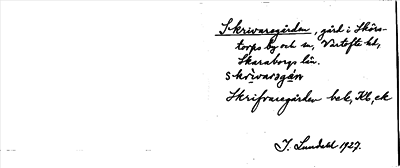 Skrivaregården, gård i Skörs-
torps by och sn, Vartofte hd,
Skaraborgs län.
skrivaragån
Skrifvaregården beb, Kb, ek
I. Lundahl 1927.